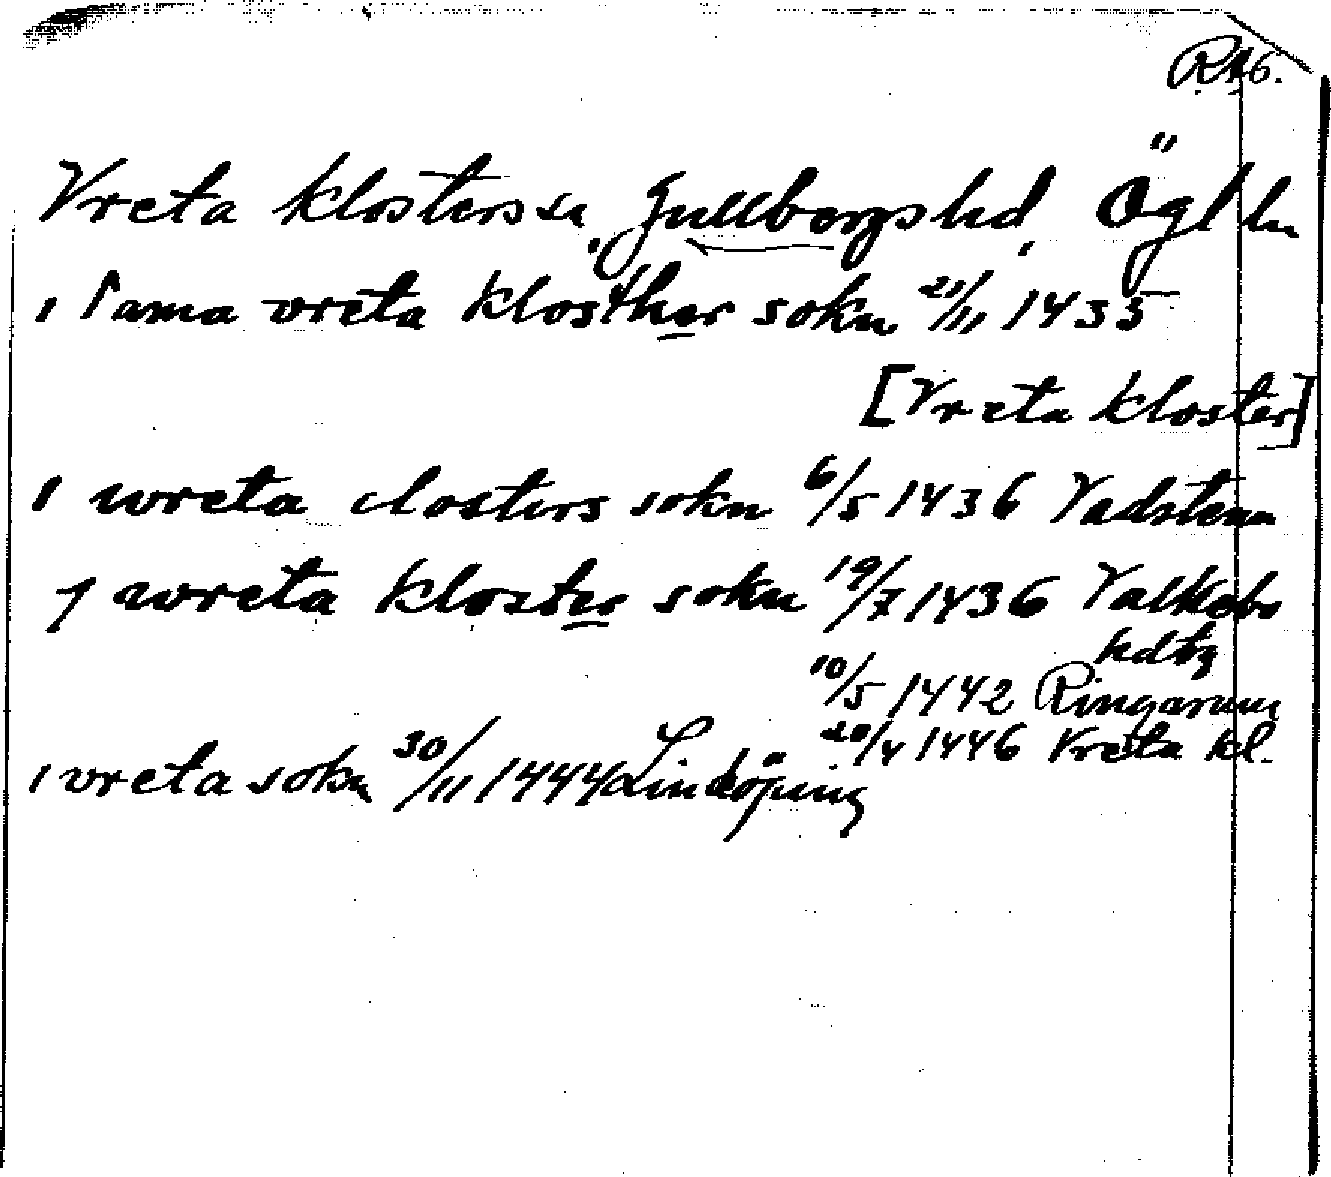 RA6.
Vreta klosters sn, Gullbergs hd, Ögl ln
i sama vreta klosther sokn 21/11 1435
[Vreta kloster]
i wreta closters sokn 6/5 1436 Vadstena
j wreta kloster sokn 19/7 1436 Valkebo
hdtg
10/5 1442 Ringarum
20/4 1446 Vreta kl.
i vreta sokn 30/11 1444 Linköping